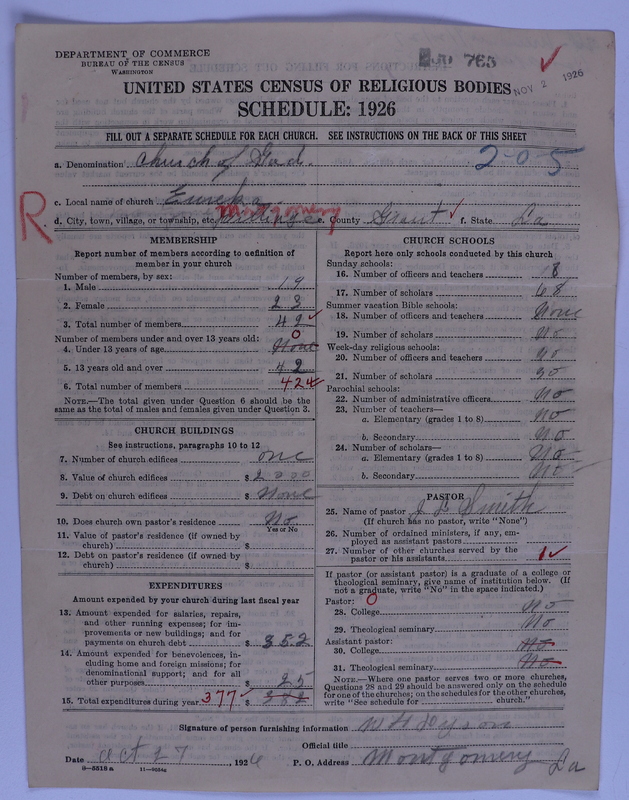 DEPARTMENT OF COMMERCE
BUREAU OF THE CENSUS
WASHINGTON
765
NOV 2 1926
UNITED STATES CENSUS OF RELIGIOUS BODIES
SCHEDULE: 1926
FILL OUT A SEPARATE SCHEDULE FOR EACH CHURCH. SEE INSTRUCTIONS ON THE BACK OF THIS SHEET
a. Denomination Church of God. 2-0-5
c. Local name of church Eureka
R
d. City, town, village, or township, etc. Montgomery e. County Grant f. State La
MEMBERSHIP
Report number of members according to definition of
member in your church
Number of members, by sex:
1. Male 19
2. Female 23
3. Total number of members 42
Number of members under and over 13 years old: 0
4. Under 13 years of age None
5. 13 years old and over 42
6. Total number of members 42
NOTE.—The total given under Question 6 should be
same as the total of males and females given under Question 3.
CHURCH BUILDINGS
See instructions, paragraphs 10 to 12
7. Number of church edifices one
8. Value of church edifices $ 2000
9. Debt on church edifices $ None
10. Does church own pastor's residence No
Yes or No
11. Value of pastor's residence (if owned by
church) $
12. Debt on pastor's residence (if owned by
church) $
EXPENDITURES
Amount expended by your church during last fiscal year
13. Amount expended for salaries, repairs,
and other running expenses; for im-
provements or new buildings; and for
payments on church debt $ 352
14. Amount expended for benevolences, in-
cluding home and foreign missions; for
denominational support; and for all
other purposes $ 25
15. Total expenditures during year 377 $
CHURCH SCHOOLS
Report here only schools conducted by this church
Sunday schools:
16. Number of officers and teachers 18
17. Number of scholars 68
Summer vacation Bible schools:
18. Number of officers and teachers None
19. Number of scholars No
Week-day religious schools:
20. Number of officers and teachers No
21. Number of scholars
Parochial schools:
22. Number of administrative officers No
23. Number of teachers—
a. Elementary (grades 1 to 8) No
b. Secondary No
24. Number of scholars—
a. Elementary (grades 1 to 8) No
b. Secondary No
PASTOR
25. Name of pastor Smith
(If church has no pastor, write "None")
26. Number of ordained ministers, if any, em-
ployed as assistant pastors
27. Number of other churches served by the
pastor or his assistants 1
If pastor (or assistant pastor) is a graduate of a college or
theological seminary, give name of institution below. (If
not a graduate, write "No" in the space indicated.)
Pastor: 0
28. College No
29. Theological seminary No
Assistant pastor:
30. College No
31. Theological seminary No
NOTE.—Where one pastor serves two or more churches,
Questions 28 and 29 should be answered only on the schedule
for one of the churches; on the schedules for the other churches,
write "See schedule for church."
Signature of person furnishing information W H Dyson
Official title
Date Oct 27, 1926 P. O. Address Montgomery La
8-5518a 11-9054a